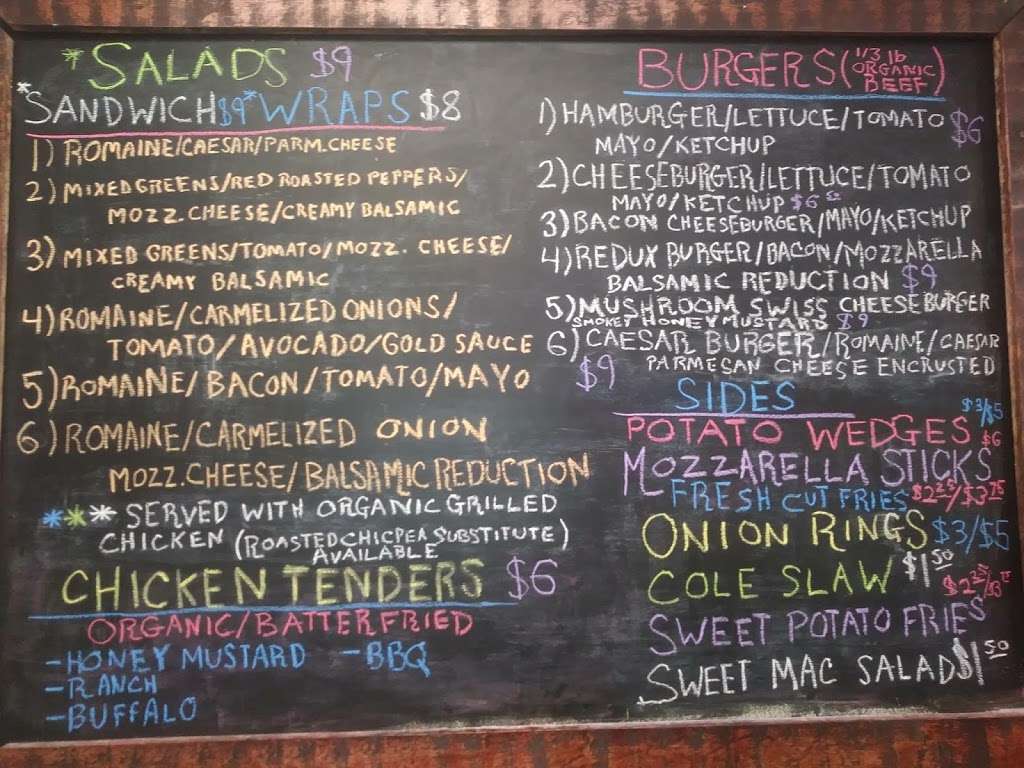 *SALADS $9
*SANDWICH $9 *WRAPS $8
1) ROMAINE/CAESAR/PARM.CHEESE
2) MIXED GREENS/RED ROASTED PEPPERS/
MOZZ. CHEESE/CREAMY BALSAMIC
3) MIXED GREENS/TOMATO/MOZZ. CHEESE/
CREAMY BALSAMIC
4) ROMAINE/CARMELIZED ONIONS/
TOMATO/AVOCADO/GOLD SAUCE
5) ROMAINE/BACON/TOMATO/MAYO
6) ROMAINE/CARMELIZED ONION
MOZZ.CHEESE/BALSAMIC REDUCTION
*** SERVED WITH ORGANIC GRILLED
CHICKEN (ROASTED CHICPEA SUBSTITUTE)
AVAILABLE
CHICKEN TENDERS $6
ORGANIC/BATTER FRIED
-HONEY MUSTARD -BBQ
-RANCH
-BUFFALO
BURGERS (1/3 lb
ORGANIC
BEEF)
1) HAMBURGER/LETTUCE/TOMATO $6
MAYO/KETCHUP
2) CHEESEBURGER/LETTUCE/TOMATO
MAYO/KETCHUP $6 50
3) BACON CHEESEBURGER/MAYO/KETCHUP
4) REDUX BURGER/BACON/MOZZARELLA
BALSAMIC REDUCTION $9
5) MUSHROOM SWISS CHEESEBURGER
SMOKEY HONEY MUSTARD $9
6) CAESAR BURGER/ROMAINE/CAESAR
$9 PARMESAN CHEESE ENCRUSTED
SIDES
POTATO WEDGES $3/$5
MOZZARELLA STICKS $6
FRESH CUT FRIES $2 25/$3 75
ONION RINGS $3/$5
COLE SLAW $1 50
SWEET POTATO FRIES $2 25/$3 75
SWEET MAC SALAD $1 50